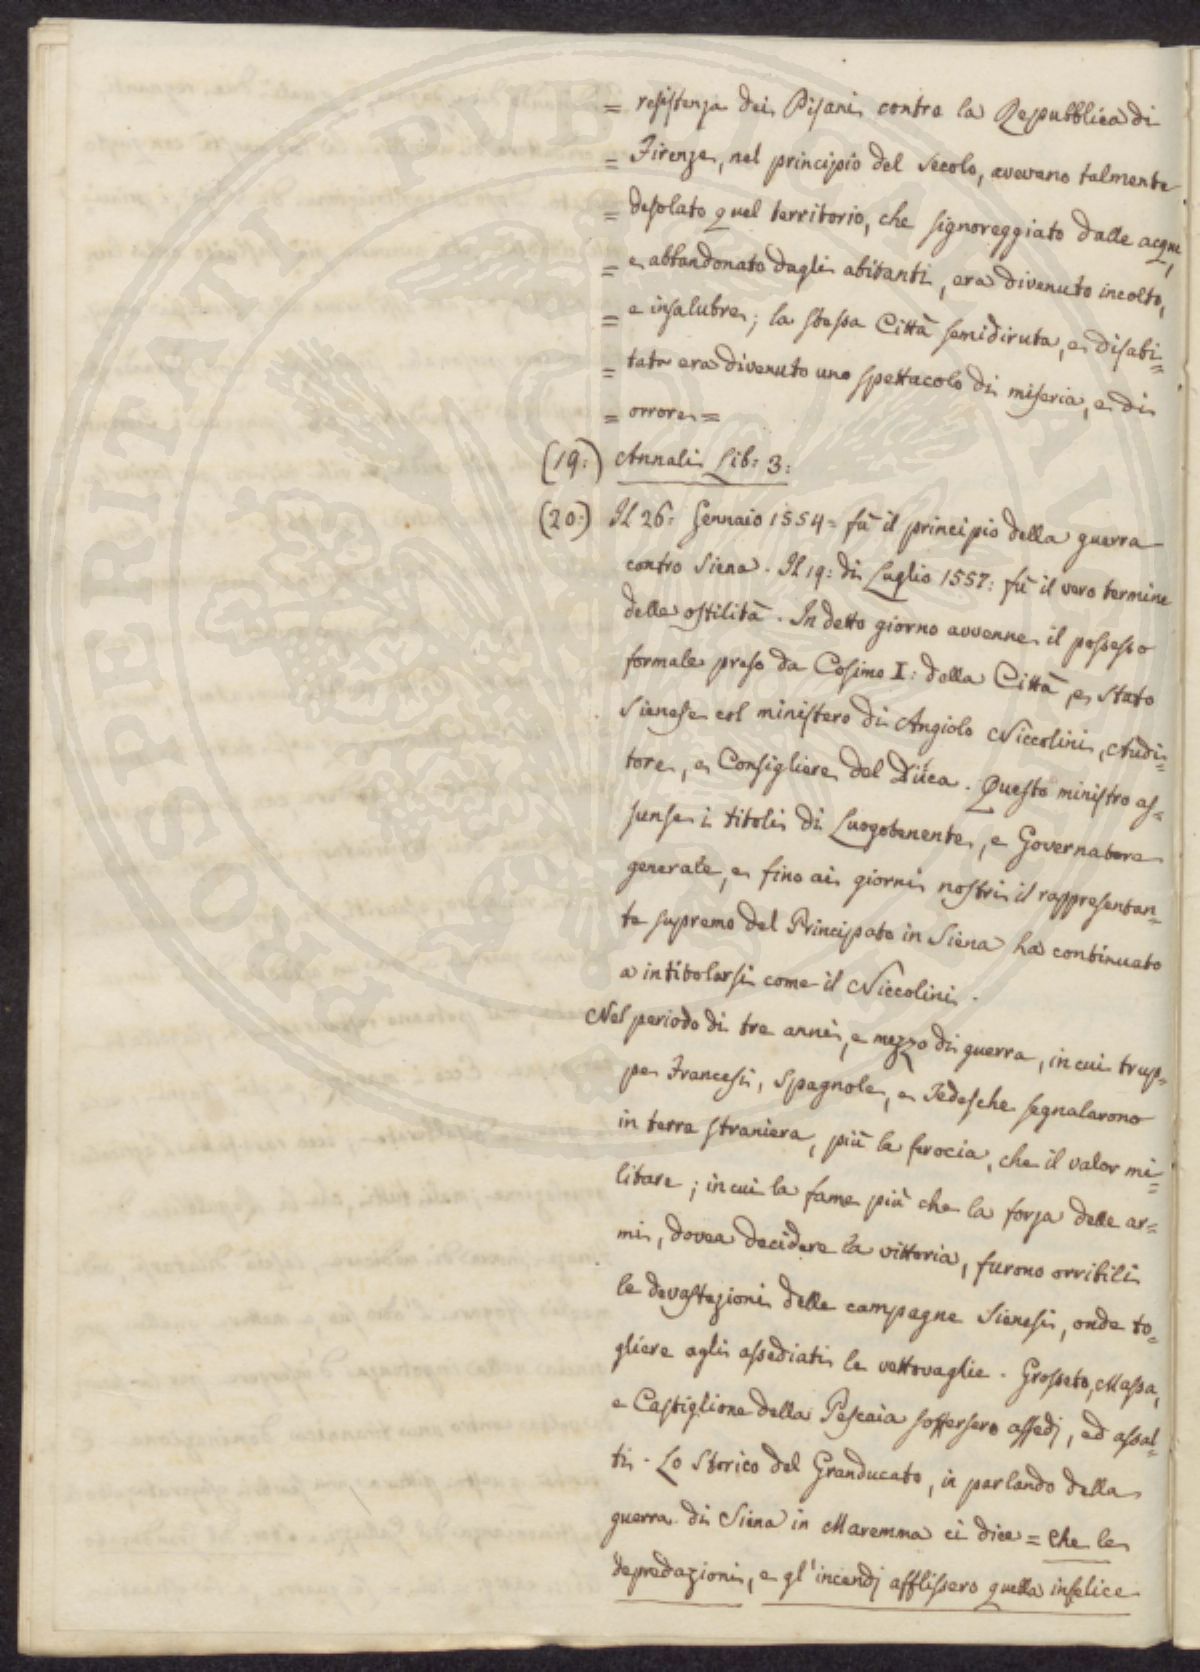 = resistenza dei Pisani contro la Repubblica di
= Firenze, nel principio del secolo, avevano talmente
= desolato quel territorio, che signoreggiato dalle acque,
= e abbandonato dagli abitanti, era divenuto incolto,
= e insalubre; la stessa Città semidiruta, e disabi=
= tata era divenuto uno spettacolo di miseria, e di
= orrore =
(19:) Annali Lib: 3:
(20:) Il 26: Gennaio 1554= fù il principio della guerra
contro Siena. Il 19: di Luglio 1557: fù il vero termine
delle ostilità. In detto giorno avvenne il possesso
formale preso da Cosimo I: della Città, e Stato
Sienese col ministero di Angiolo Niccolini, Audi=
tore, e Consigliere del Duca. Questo ministro as=
sunse i titoli di Luogotenente, e Governatore
generale, e fino ai giorni nostri il rappresentan=
te supremo del Principato in Siena ha continuato
a intitolarsi come il Niccolini.
Nel periodo di tre anni, e mezzo di guerra, in cui trup=
pe Francesi, Spagnole, e Tedesche segnalarono
in terra straniera, più la ferocia, che il valor mi=
litare; in cui la fame più che la forza delle ar=
mi, dovea decidere la vittoria, furono orribili
le devastazioni delle campagne Sienesi, onde to=
gliere agli assediati le vettovaglie. Grosseto, Massa,
e Castiglione della Pescaia soffersero assedj, ed assal=
ti. Lo Storico del Granducato, in parlando della
guerra di Siena in Maremma ci dice = che le
depredazioni, e gl'incendj afflissero quella infelice
PROSPERITATI PUBLICAE